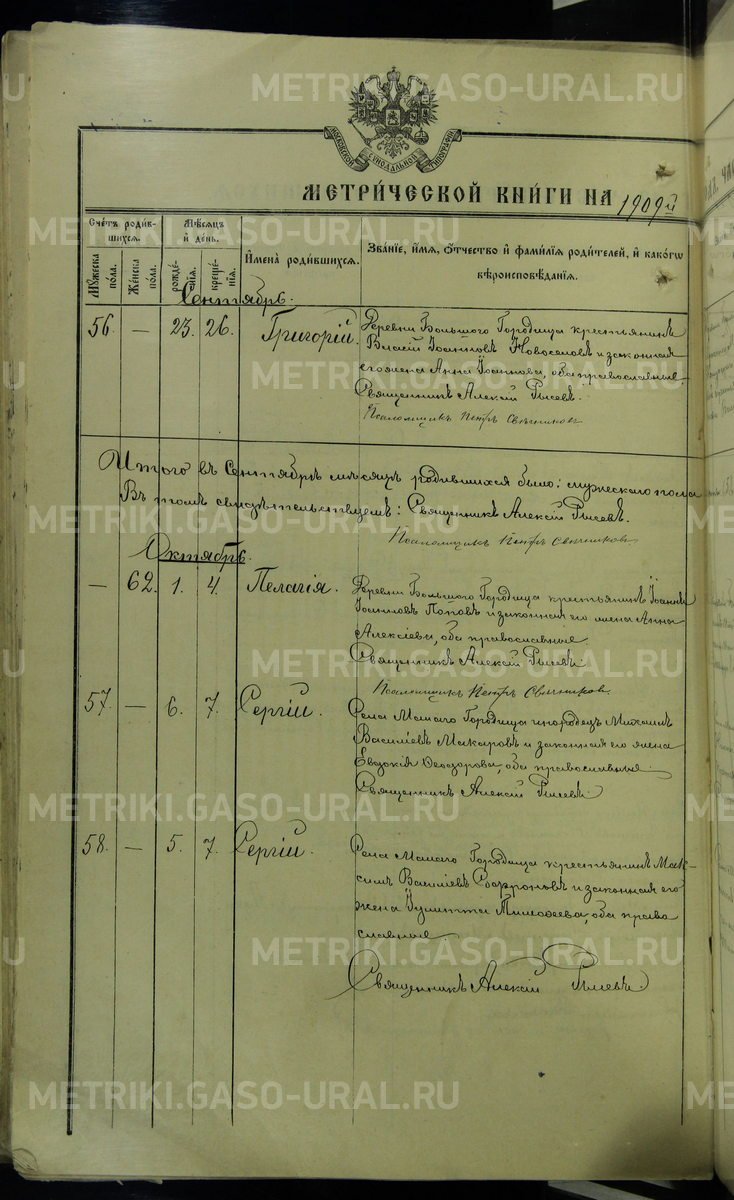 METRIKI.GASO-URAL.RU
МОСКОВСКОЙ СѴНОДАЛЬНОЙ ТИПОГРАФІИ
МЕТРИ́ЧЕСКОЙ КНИ́ГИ НА 1909й
Счетъ роди́вшихся.
Мѣ́сяцъ и҆ де́нь.
Мꙋжеска по́ла.
Же́нска по́ла.
рожде́нїѧ.
креще́нїѧ.
И҆мена̀ роди́вшихсѧ.
Зва́нїе, и҆́мѧ, ѻ҆́тчество и҆ фами́лїѧ роди́телей, и҆ како́гѡ
вѣроисповѣ́данїѧ.
Сентябрь.
56. — 23. 26. Григорій
Деревни Большого Городища крестьянинъ
Власій Іоанновъ Новоселовъ и законная
его жена Анна Іоаннова, оба православные.
Священникъ Алексій
Псаломщикъ Петръ Свѣчниковъ
Итого въ Сентябрѣ мѣсяцѣ родившихся было: мужескаго пола
Въ томъ свидѣтельствуемъ: Священникъ Алексій
Псаломщикъ Петръ Свѣчниковъ
Октябрь.
— 62. 1. 4. Пелагія.
Деревни Большого Городища крестьянинъ Іоаннъ
Іоанновъ Поповъ и законная его жена Анна
Алексіева, оба православные
Священникъ Алексій
Псаломщикъ Петръ Свѣчников.
57. — 6. 7. Сергій.
Села Малаго Городища инородецъ Михаилъ
Василіевъ Макаровъ и законная его жена
Евдокія Ѳеодорова, оба православные.
Священникъ Алексій
58. — 5. 7. Сергій.
Села Малаго Городища крестьянинъ Мак-
симъ Василіевъ Софроновъ и законная его
жена Іулитта Тимоѳеева, оба право
славные.
Священникъ Алексій